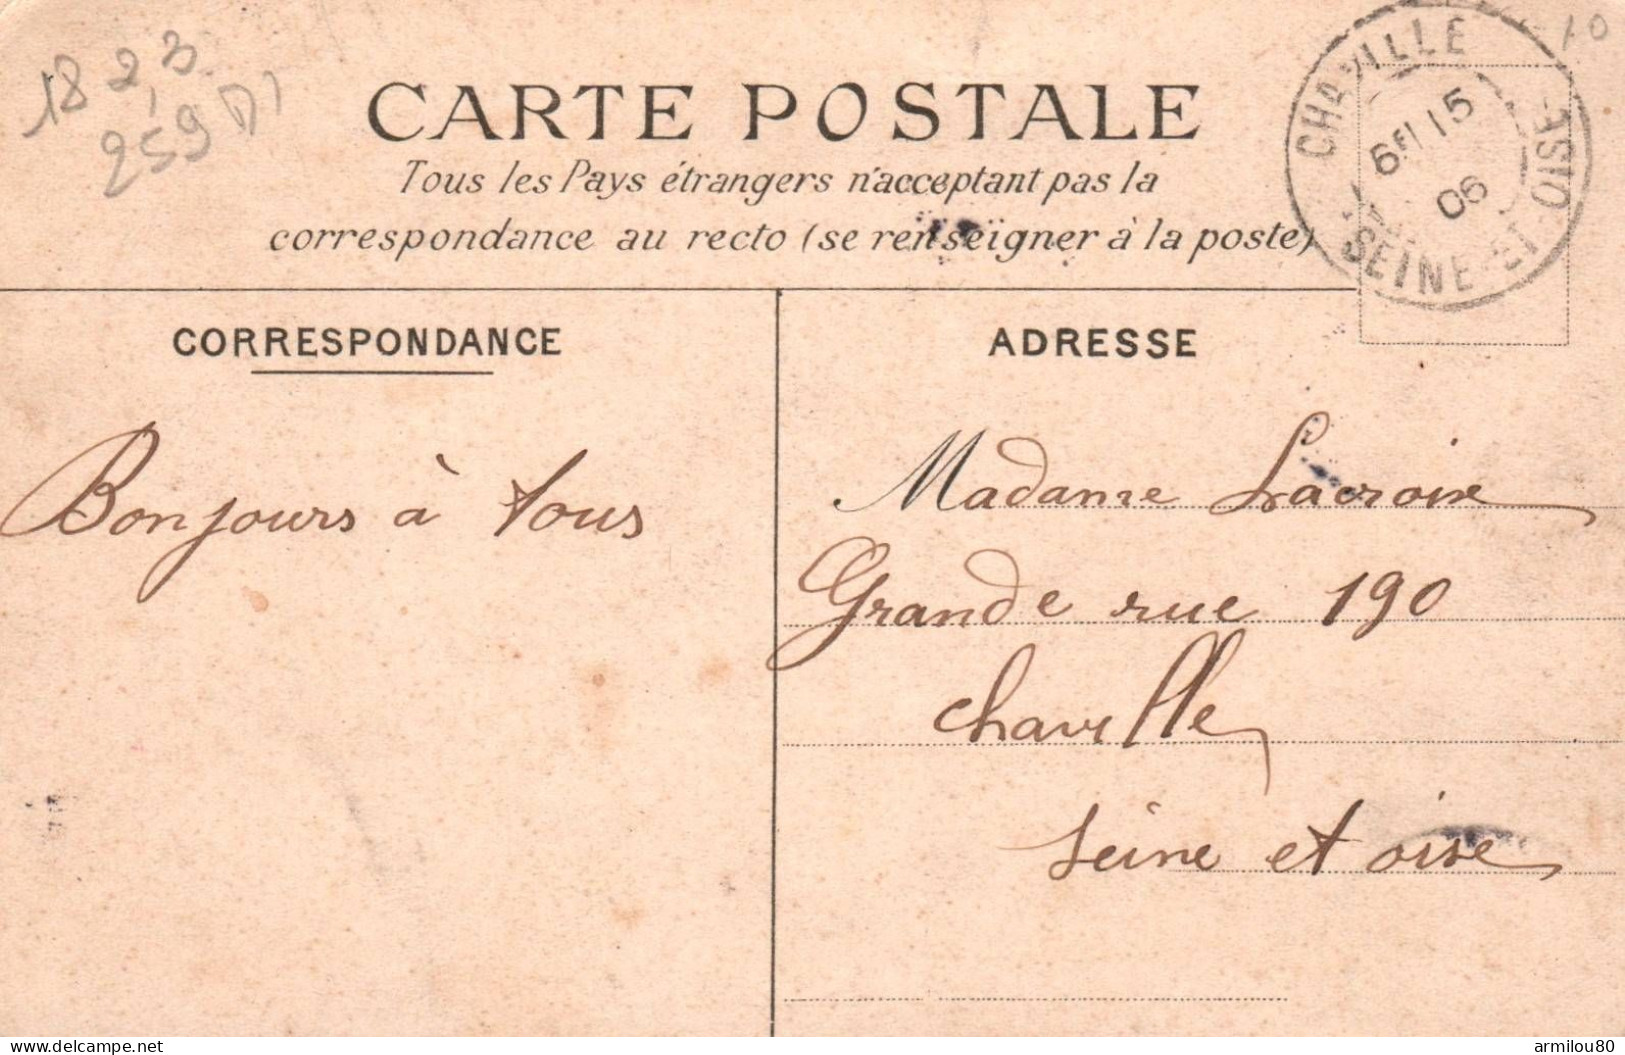 18 2,3
259
10
CARTE POSTALE
Tous les Pays étrangers n'acceptant pas la
correspondance au recto (se renseigner à la poste)
CHAVILLE
15
06
SEINE-ET-OISE
CORRESPONDANCE
ADRESSE
Bonjours à tous
Madame Lacroix
Grande rue 190
Chaville
Seine et oise
delcampe.net
armilou80